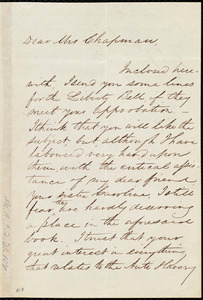 Dear Mrs Chapman,
Inclosed here-
with I send you some lines
for the Liberty Bell if they
meet your approbation
I think that you will like the
subject, but although I have
laboured very hard upon
them with the critical assis-
tance of my dear friend
your sister Caroline, I still
fear, they are hardly deserving
a place in the aforesaid
book. I trust that your
great interest in everything
that relates to the Anti Slavery